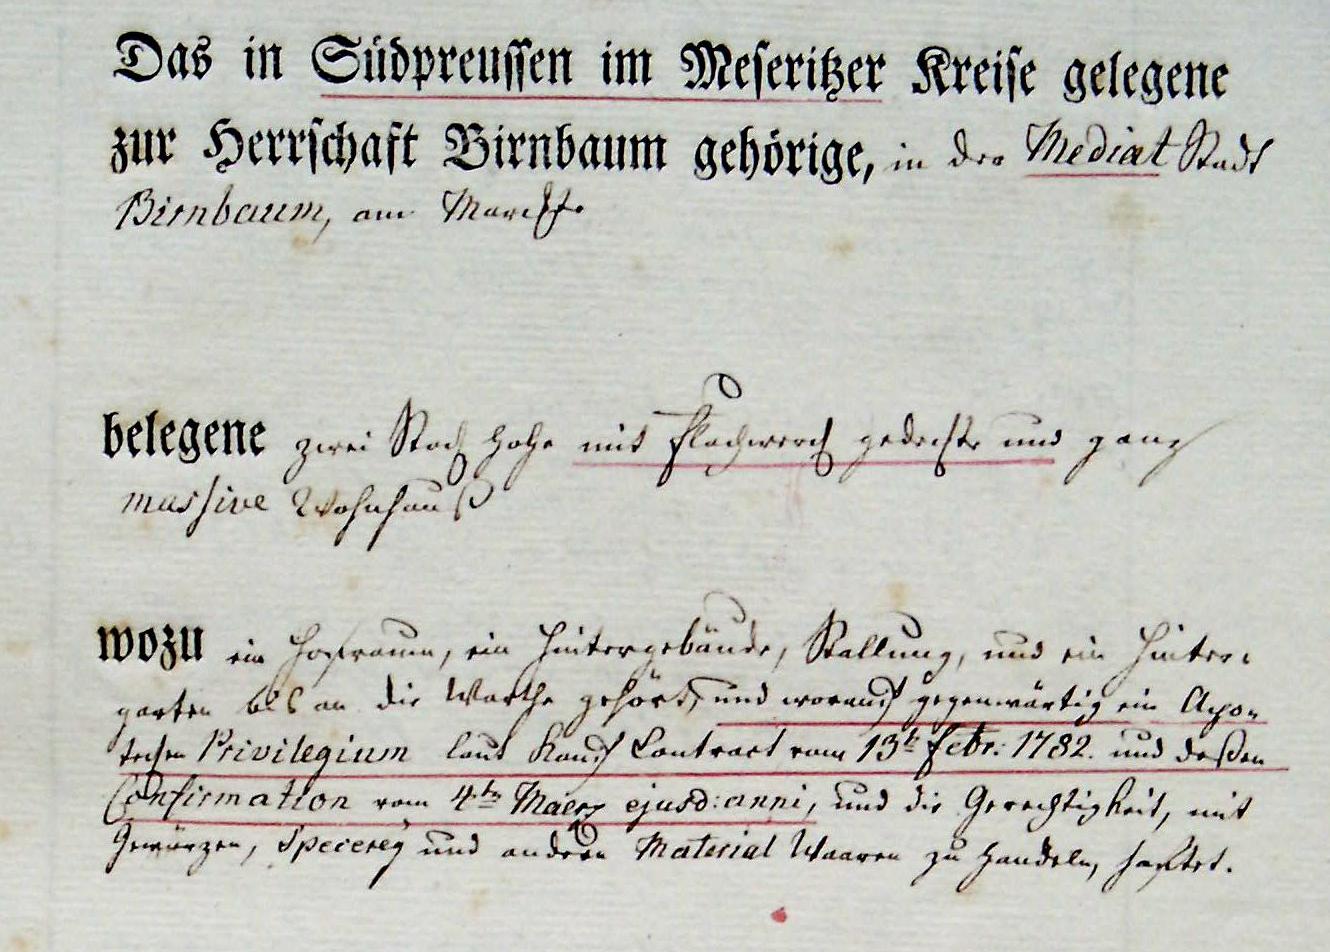 Das in Südpreussen im Meseritzer Kreise gelegene
zur Herrschaft Birnbaum gehörige, in der Mediat Stadt
Birnbaum, am Marckte
belegene zwei Stock hohe mit Flachwerck gedeckte und ganz
massive Wohnhauß
wozu ein Hofraum, ein Hintergebäude, Stallung, und ein Hinter-
garten bis an die Warthe gehört, und worauf gegenwärtig ein Apo-
tecken Privilegium laut Kauf Contract vom 13t Febr: 1782. und deßen
Confirmation vom 4ten Maerz ejusd: anni, und die Gerechtigkeit, mit
Gewürzen, Specerey und andern Material Waaren zu handeln, haftet.